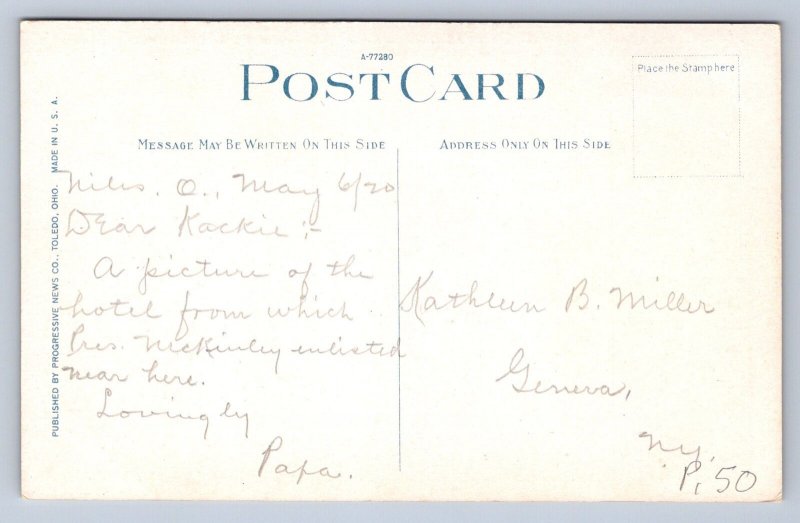 A-77280
POST CARD
Place the Stamp here
MESSAGE MAY BE WRITTEN ON THIS SIDE
ADDRESS ONLY ON THIS SIDE
PUBLISHED BY PROGRESSIVE NEWS CO., TOLEDO, OHIO. MADE IN U. S. A.
Niles. O., May 6/20
Dear Kackie:-
A picture of the
hotel from which
Pres. McKinley enlisted
near here.
Lovingly
Papa.
Kathleen B. Miller
Geneva,
N.Y.
P. 50